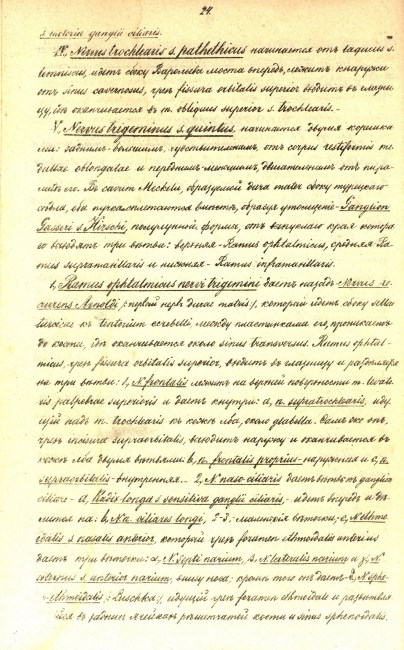 24.
s. motoria ganglii ciliaris.
IV. Nervus trochlearis s. pathethicus начинается отъ laqueus s.
lemniscus, идетъ сбоку Вароліева моста впередъ, лежитъ кнаружи
отъ sinus cavernosus, чрез fissura orbitalis superior входитъ въ глазни-
цу, гдѣ оканчивается въ m. obliquus superior s. trochlearis.
V. Nervus trigeminus s. quintus, начинается двумя корешка-
ми: заднимъ-большимъ, чувствительнымъ, отъ corpus restiformis me-
dullae oblongatae и переднимъ-меньшимъ, двигательнымъ отъ пира-
мидъ его. Въ cavum Meckelii, образуемой dura mater сбоку турецкаго
сѣдла, оба пучка сплетаются вмѣстѣ, образуя утолщеніе - Ganglion
Gasseri s. Hirschi, полулунной формы, отъ выпуклаго края котора-
го выходятъ три вѣтви: верхняя - Ramus ophtalmicus, средняя Ra-
mus supramaxillaris и нижняя - Ramus inframaxillaris.
1, Ramus ophtalmicus nervi trigemini даетъ назадъ - Nervus re-
currens Arnoldi, (первый нервъ durae matris), который идетъ сбоку sellae
turcicae къ tentorium cerebelli, между пластинками его, проникаетъ
до кости, гдѣ оканчивается около sinus transversus. Ramus ophtal-
micus, чрез fissura orbitalis superior, входитъ въ глазницу и распадается
на три вѣтви: 1, N. frontalis лежитъ на верхней поверхности m. levato-
ris palpebrae superioris и даетъ кнутри: a, n. supratrochlearis, иду-
щій надъ m. trochlearis къ кожѣ лба, около glabella. Самъ же онъ,
чрезъ incisura supraorbitalis, выходитъ наружу и оканчивается въ
кожѣ лба двумя вѣтвями: b, n. frontalis proprius - наружная и c, n.
supraorbitalis - внутренняя. 2, N. naso ciliaris даетъ вѣтвь къ ganglion
ciliare - a, Radix longa s. sensitiva ganglii ciliaris - идетъ впередъ и дѣ-
лится на: b, N.n. ciliares longi, 2-3 маленькія вѣточки; c, N. ethmo-
idalis s. nasalis anterior, который чрезъ foramen ethmoidale anterius
даетъ три вѣточки: α, N. septi narium, β, N. lateralis narium и γ, N.
externus s. anterior narium, внизу носа; кромѣ того даетъ - d, N. sphe-
no-ethmoidalis (Luschka), идущій чрезъ foramen ethmoidale и развѣтвля-
ющійся въ заднихъ ячейкахъ рѣшетчатой кости и sinus sphenoidalis.